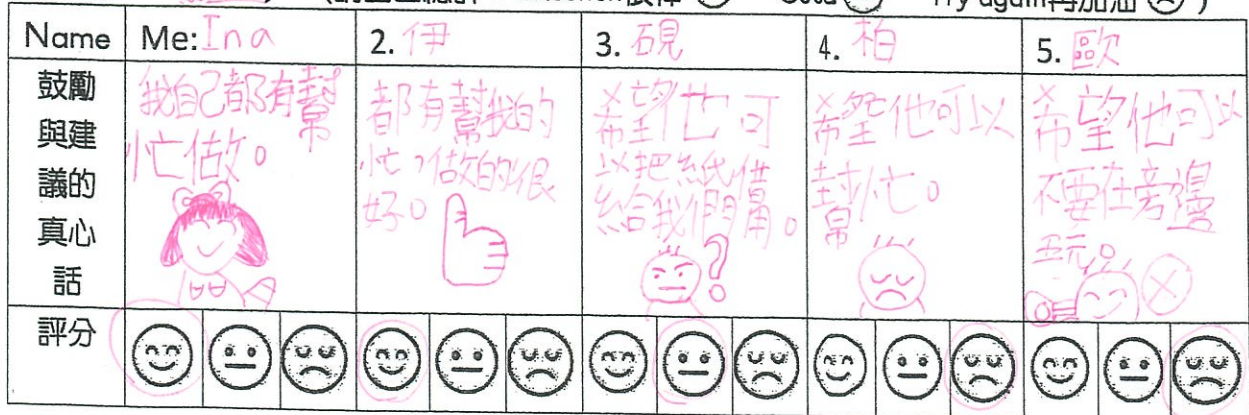 Try again再加油
Name Me:Ina 2.伊 3.硯 4.柏 5.歐
鼓勵
與建
議的
真心
話
我自己都有幫
忙做。
都有幫我的
忙,做的很
好。
希望他可
以把紙借
給我們用。
希望他可以
幫忙。
希望他可以
不要在旁邊
玩。
評分